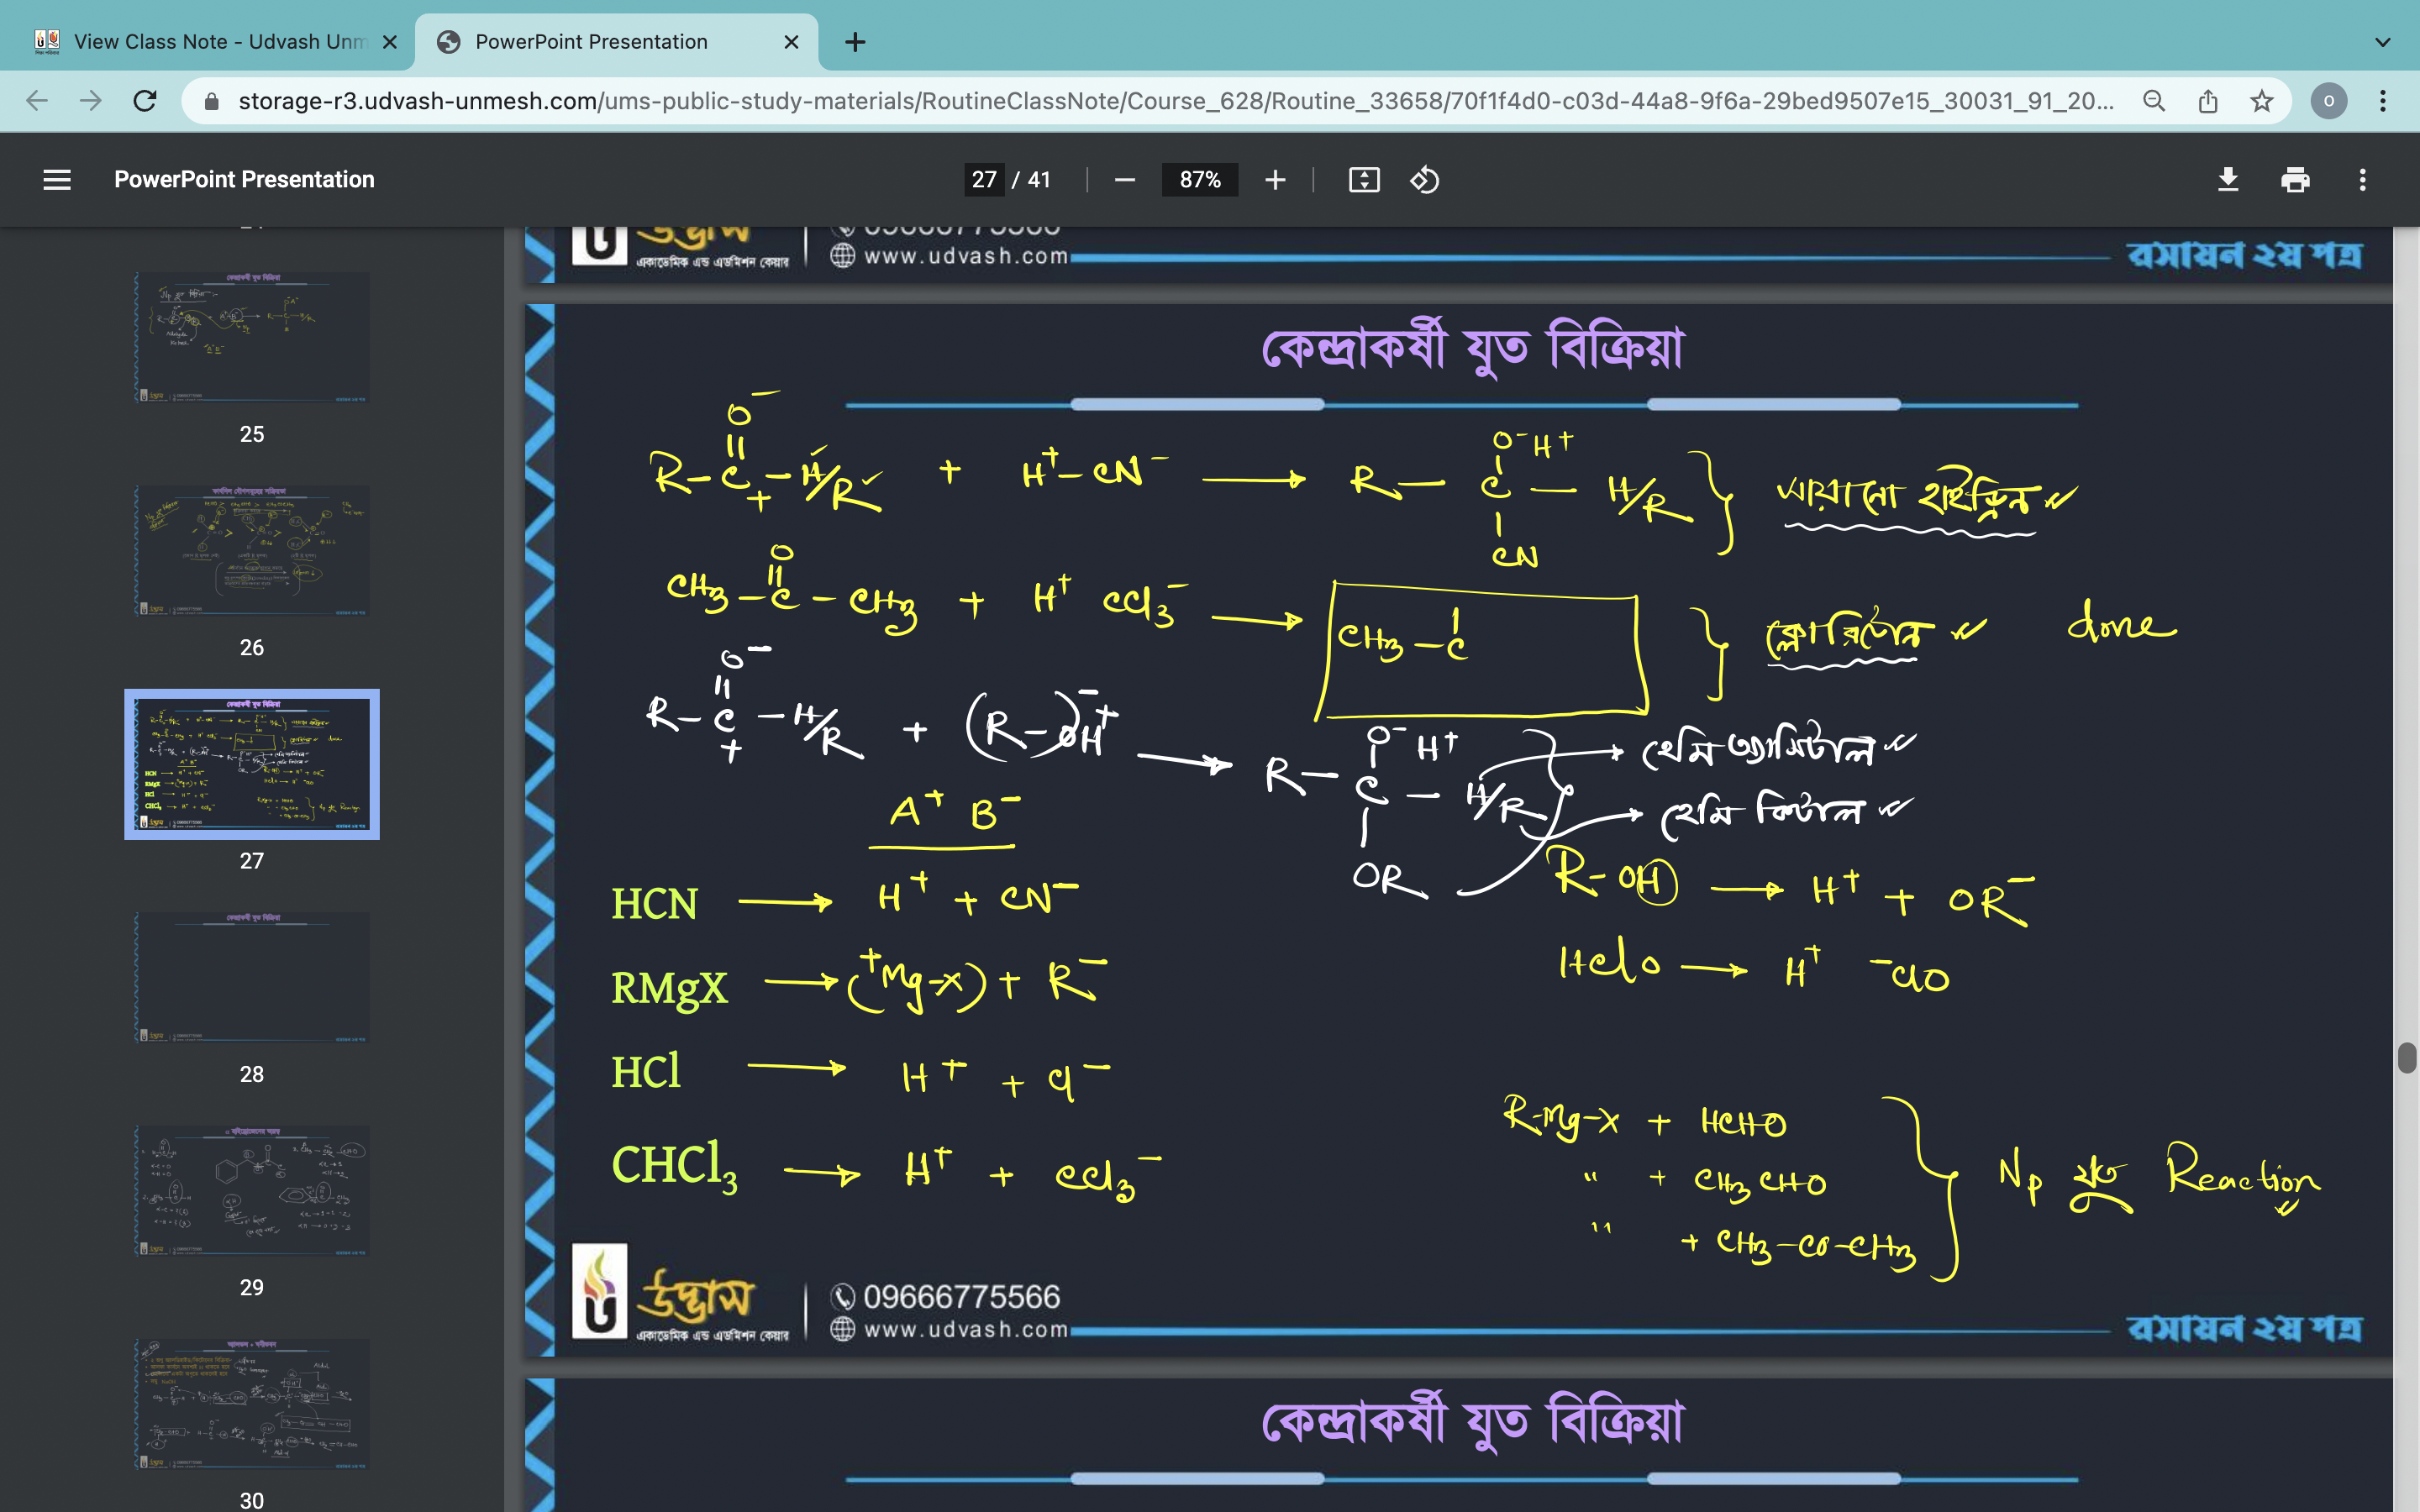 View Class Note - Udvash Unm
PowerPoint Presentation
storage-r3.udvash-unmesh.com/ums-public-study-materials/RoutineClassNote/Course_628/Routine_33658/70f1f4d0-c03d-44a8-9f6a-29bed9507e15_30031_91_20...
o
PowerPoint Presentation
27 / 41
87%
25
26
27
28
29
30
উদ্ভাস
একাডেমিক এন্ড এডমিশন কেয়ার
09666775566
www.udvash.com
রসায়ন ২য় পত্র
কেন্দ্রাকর্ষী যুত বিক্রিয়া
O⁻
R–C–H/R + H⁺–CN⁻ → R–C–H/R
+
O⁻H⁺
CN
সায়ানো হাইড্রিন
O
CH3–C–CH3 + H⁺ CCl3⁻ → CH3–C
ক্লোরিটোন
done
O⁻
R–C–H/R + (R–O)⁻H⁺ → R–C–H/R
+
O⁻H⁺
OR
হেমি অ্যাসিটাল
হেমি কিটাল
A⁺ B⁻
HCN → H⁺ + CN⁻
R–OH → H⁺ + OR⁻
HClO → H⁺ ⁻ClO
RMgX → (⁺Mg–X) + R⁻
HCl → H⁺ + Cl⁻
CHCl3 → H⁺ + CCl3⁻
R–Mg–X + HCHO
" + CH3CHO
" + CH3–CO–CH3
Np যুত Reaction
উদ্ভাস
একাডেমিক এন্ড এডমিশন কেয়ার
09666775566
www.udvash.com
রসায়ন ২য় পত্র
কেন্দ্রাকর্ষী যুত বিক্রিয়া